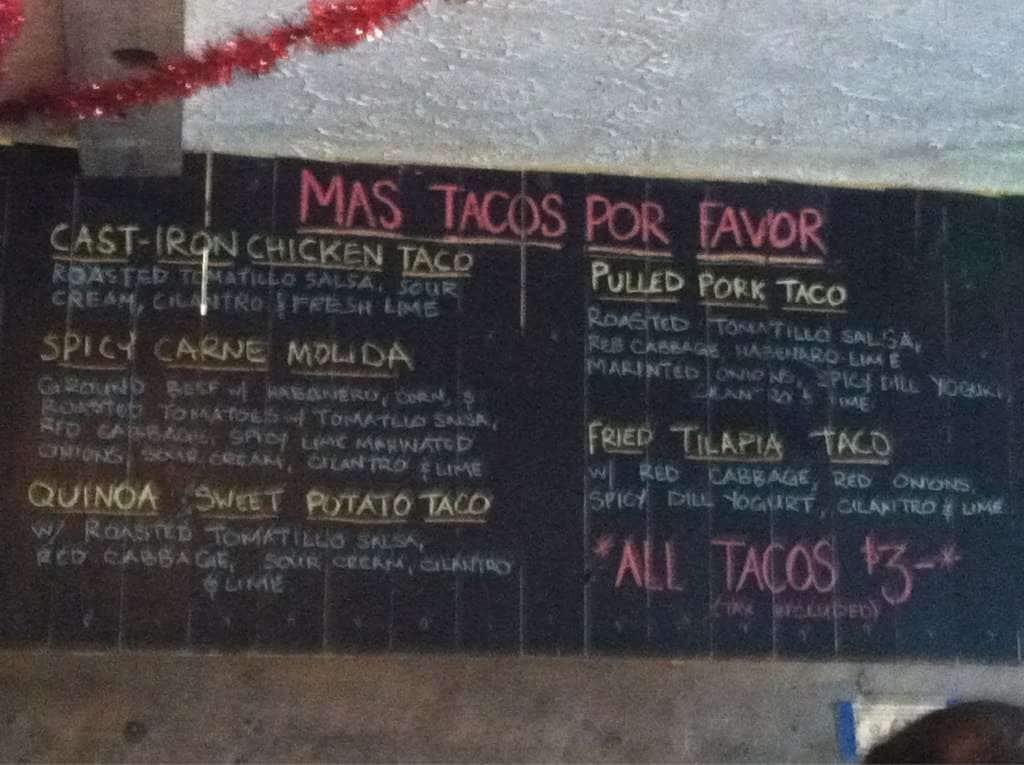 MAS TACOS POR FAVOR
CAST-IRON CHICKEN TACO
ROASTED TOMATILLO SALSA, SOUR
CREAM, CILANTRO & FRESH LIME
SPICY CARNE MOLIDA
GROUND BEEF W/ HABENERO, CORN, &
ROASTED TOMATOES W/ TOMATILLO SALSA,
RED CABBAGE, SPICY LIME MARINATED
ONIONS, SOUR CREAM, CILANTRO & LIME
QUINOA SWEET POTATO TACO
W/ ROASTED TOMATILLO SALSA,
RED CABBAGE, SOUR CREAM, CILANTRO
& LIME
PULLED PORK TACO
ROASTED TOMATILLO SALSA,
RED CABBAGE, HABENARO-LIME
MARINTED ONIONS, SPICY DILL YOGURT,
& LIME
FRIED TILAPIA TACO
W/ RED CABBAGE, RED ONIONS,
SPICY DILL YOGURT, CILANTRO & LIME
*ALL TACOS $3-*
(TAX INCLUDED)